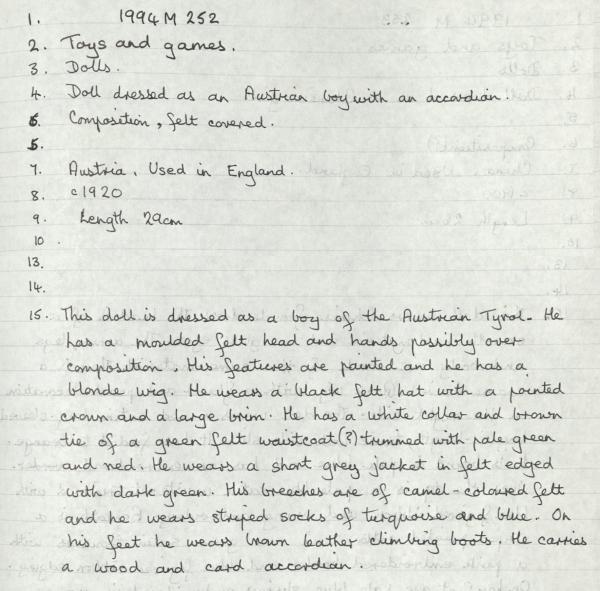 1. 1994 M 252
2. Toys and games.
3. Dolls.
4. Doll dressed as an Austrian boy with an accordian.
6. Composition, felt covered.
5.
7. Austria. Used in England.
8. c1920
9. Length 29cm
10.
13.
14.
15. This doll is dressed as a boy of the Austrian Tyrol. He
has a moulded felt head and hands possibly over
composition. His features are painted and he has a
blonde wig. He wears a black felt hat with a pointed
crown and a large brim. He has a white collar and brown
tie of a green felt waistcoat(?) trimmed with pale green
and red. He wears a short grey jacket in felt edged
with dark green. His breeches are of camel-coloured felt
and he wears striped socks of turquoise and blue. On
his feet he wears brown leather climbing boots. He carries
a wood and card accordian.